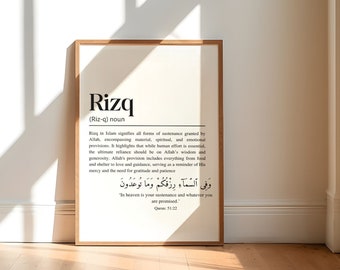 Rizq
(Riz-q) noun
Rizq in Islam signifies all forms of sustenance granted by
Allah, encompassing material, spiritual, and emotional
provisions. It highlights that while human effort is essential,
the ultimate reliance should be on Allah's wisdom and
generosity. Allah's provision includes everything from food
and shelter to love and guidance, serving as a reminder of His
mercy and the need for gratitude and patience
وَفِى ٱلسَّمَآءِ رِزْقُكُمْ وَمَا تُوعَدُونَ
"In heaven is your sustenance and whatever you
are promised."
Quran: 51:22